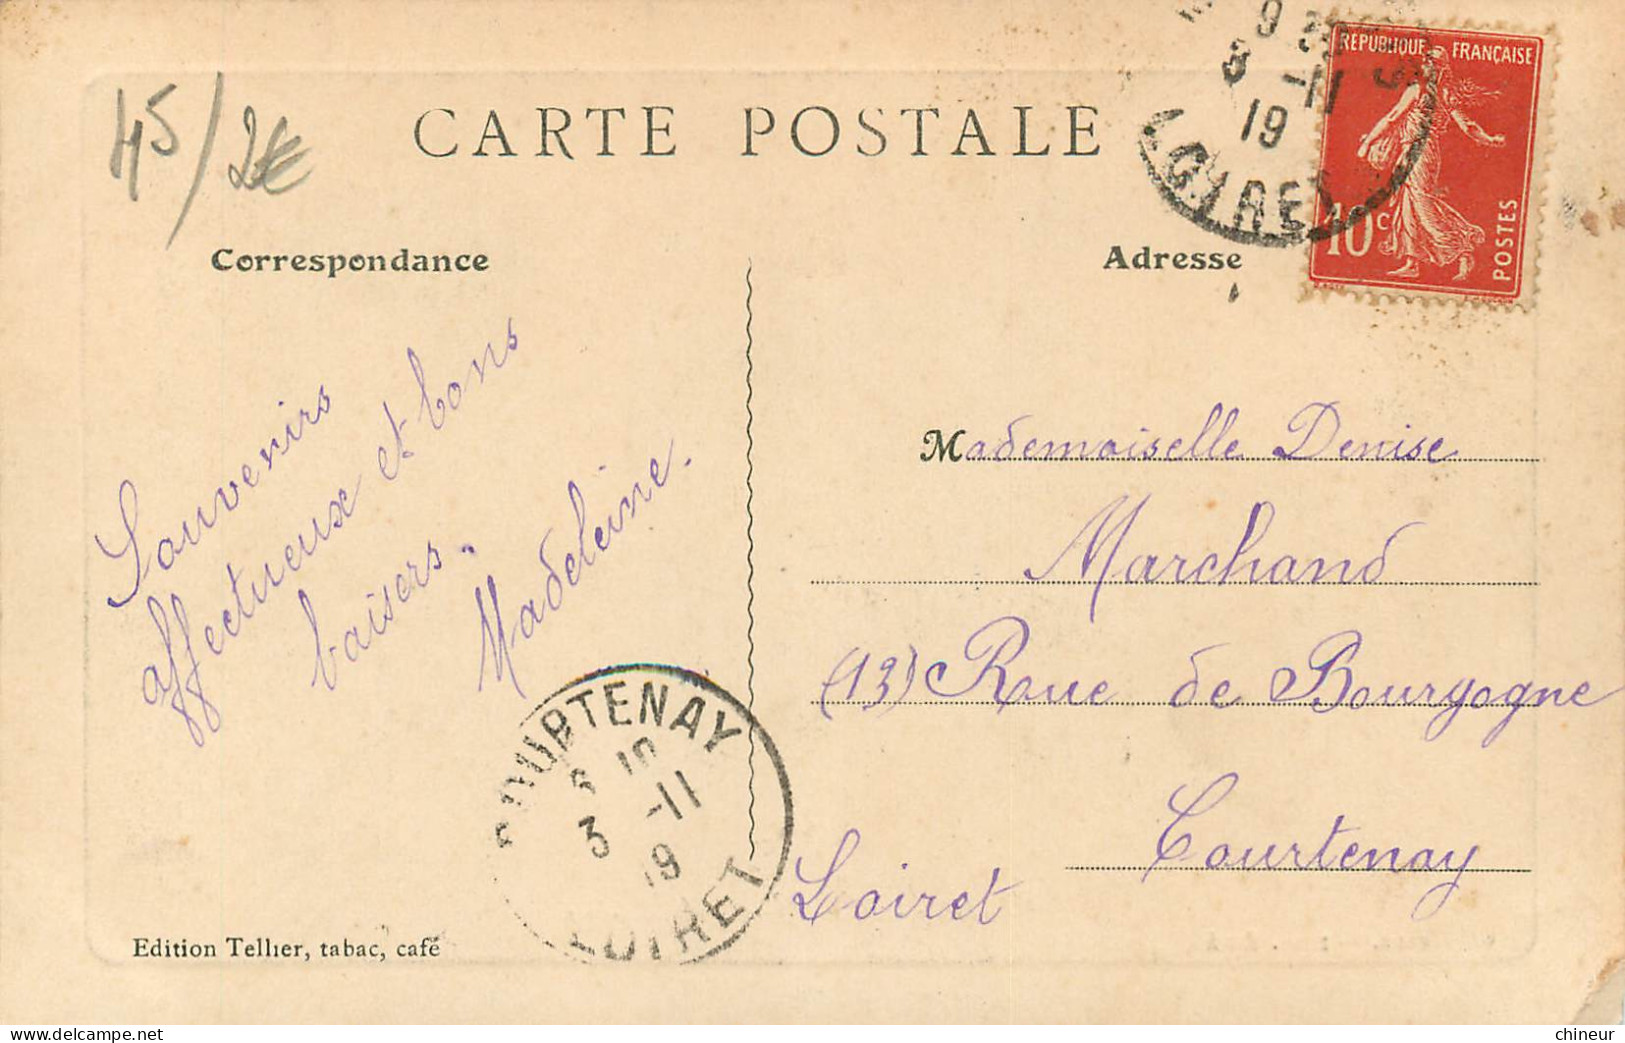 45/2€
CARTE POSTALE
Correspondance
Adresse
RÉPUBLIQUE FRANÇAISE
10c
POSTES
3 -11
19
LOIRET
Souvenirs
affectueux et bons
baisers.
Madeleine.
Mademoiselle Denise
Marchand
(13) Roue de Bourgogne
Courtenay
Loiret
COURTENAY
3 -11
19
LOIRET
Edition Tellier, tabac, café
delcampe.net
chineur